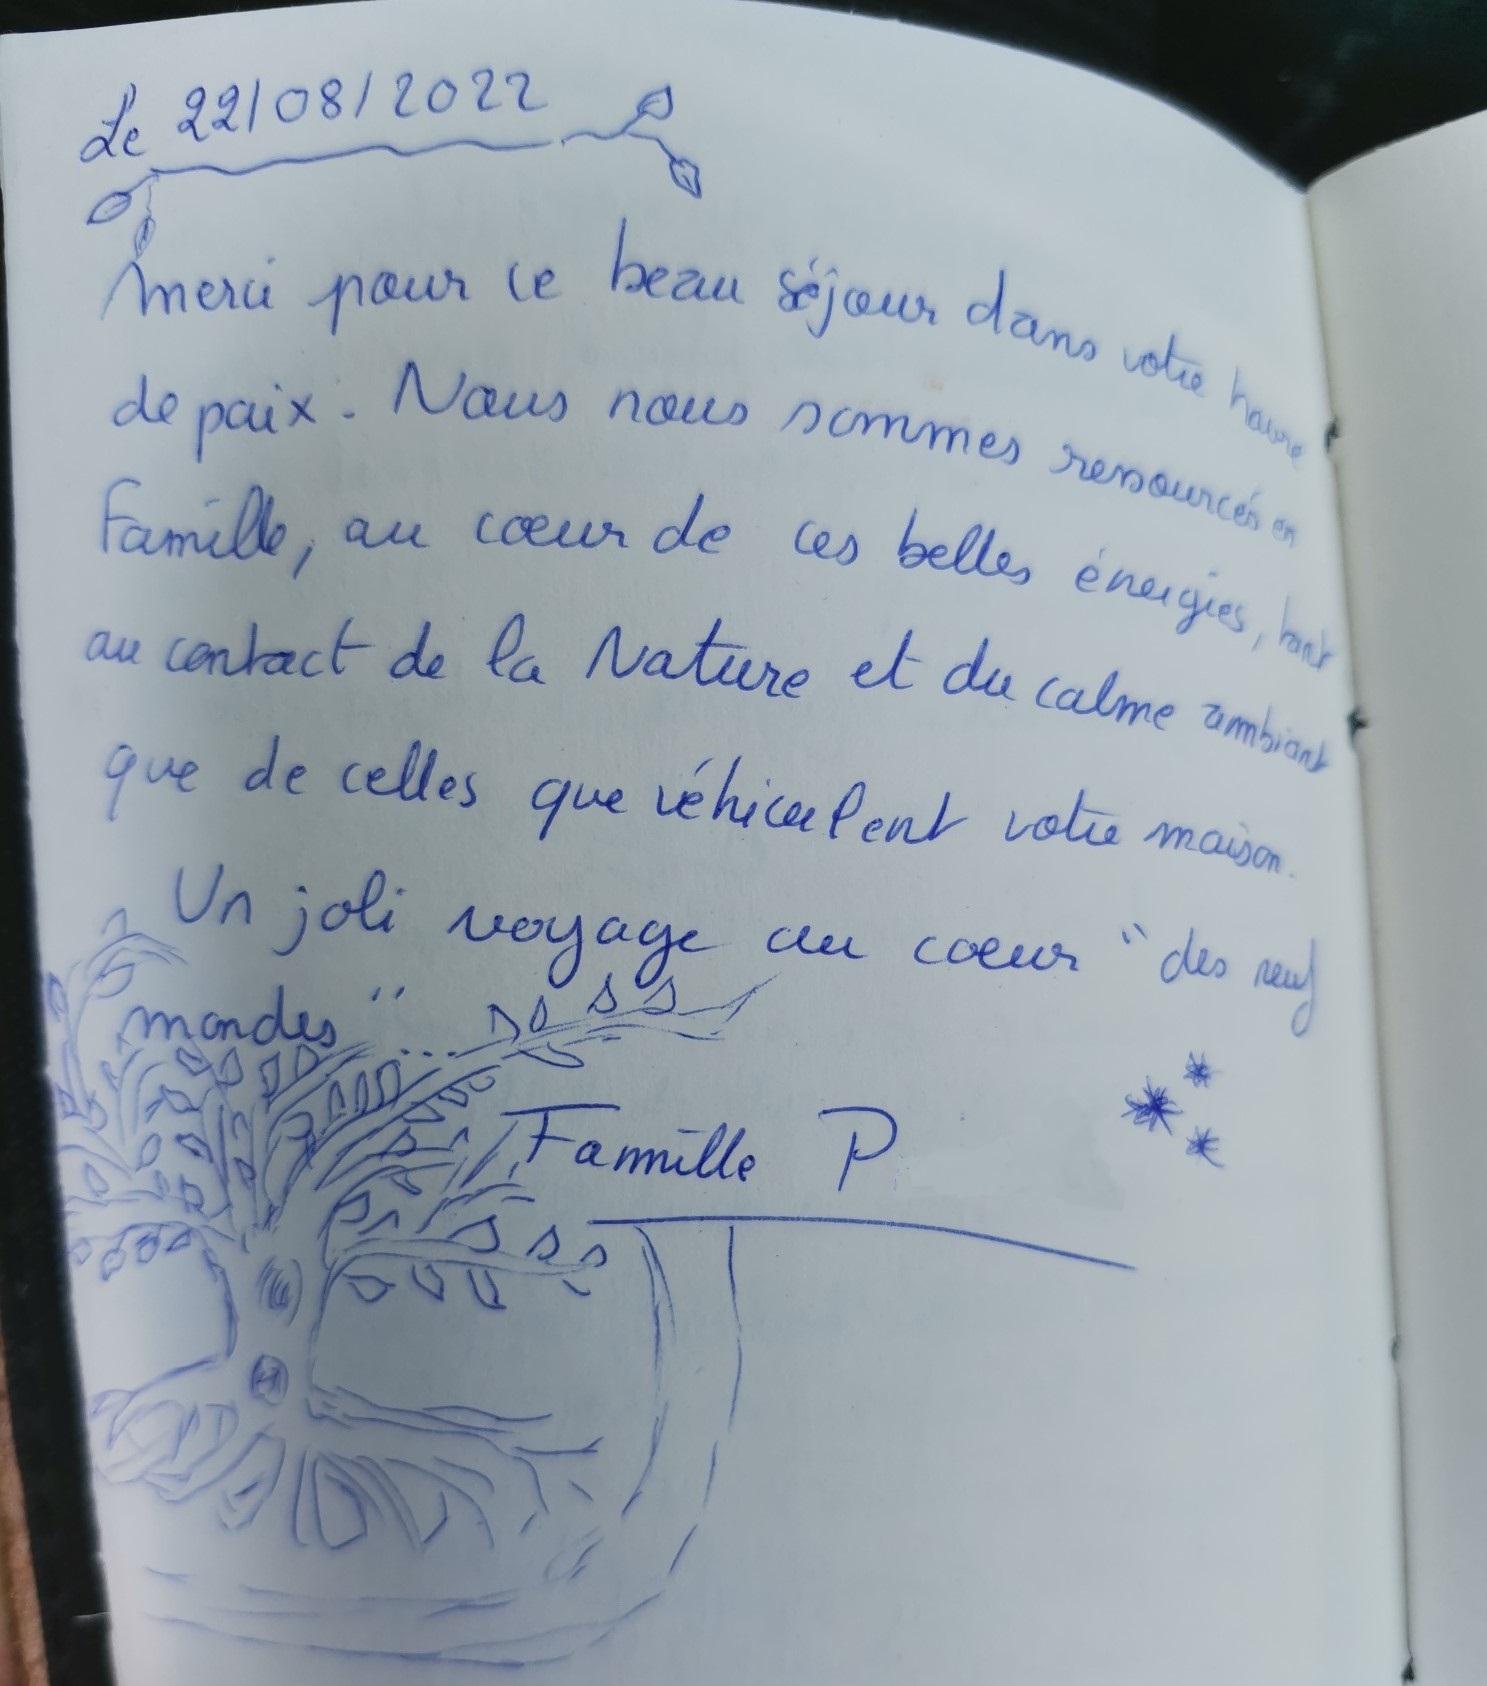 Le 22/08/2022
Merci pour ce beau séjour dans votre havre
de paix. Nous nous sommes ressourcés en
Famille, au cœur de ces belles énergies, tant
au contact de la Nature et du calme ambiant
que de celles que véhiculent votre maison.
Un joli voyage au cœur "des neuf
mondes"...
Famille P